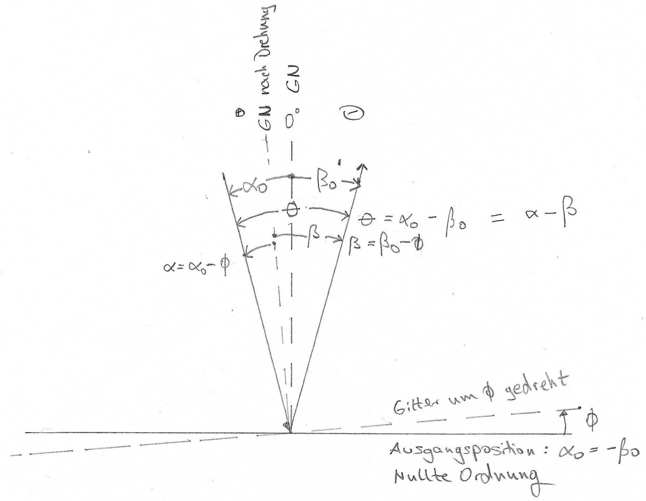 GN nach Drehung
0° GN
⊕
⊖
α₀
β₀
Θ
Θ = α₀ - β₀ = α - β
β
β = β₀ - ϕ
α = α₀ - ϕ
Gitter um ϕ gedreht
ϕ
Ausgangsposition: α₀ = -β₀
Nullte Ordnung